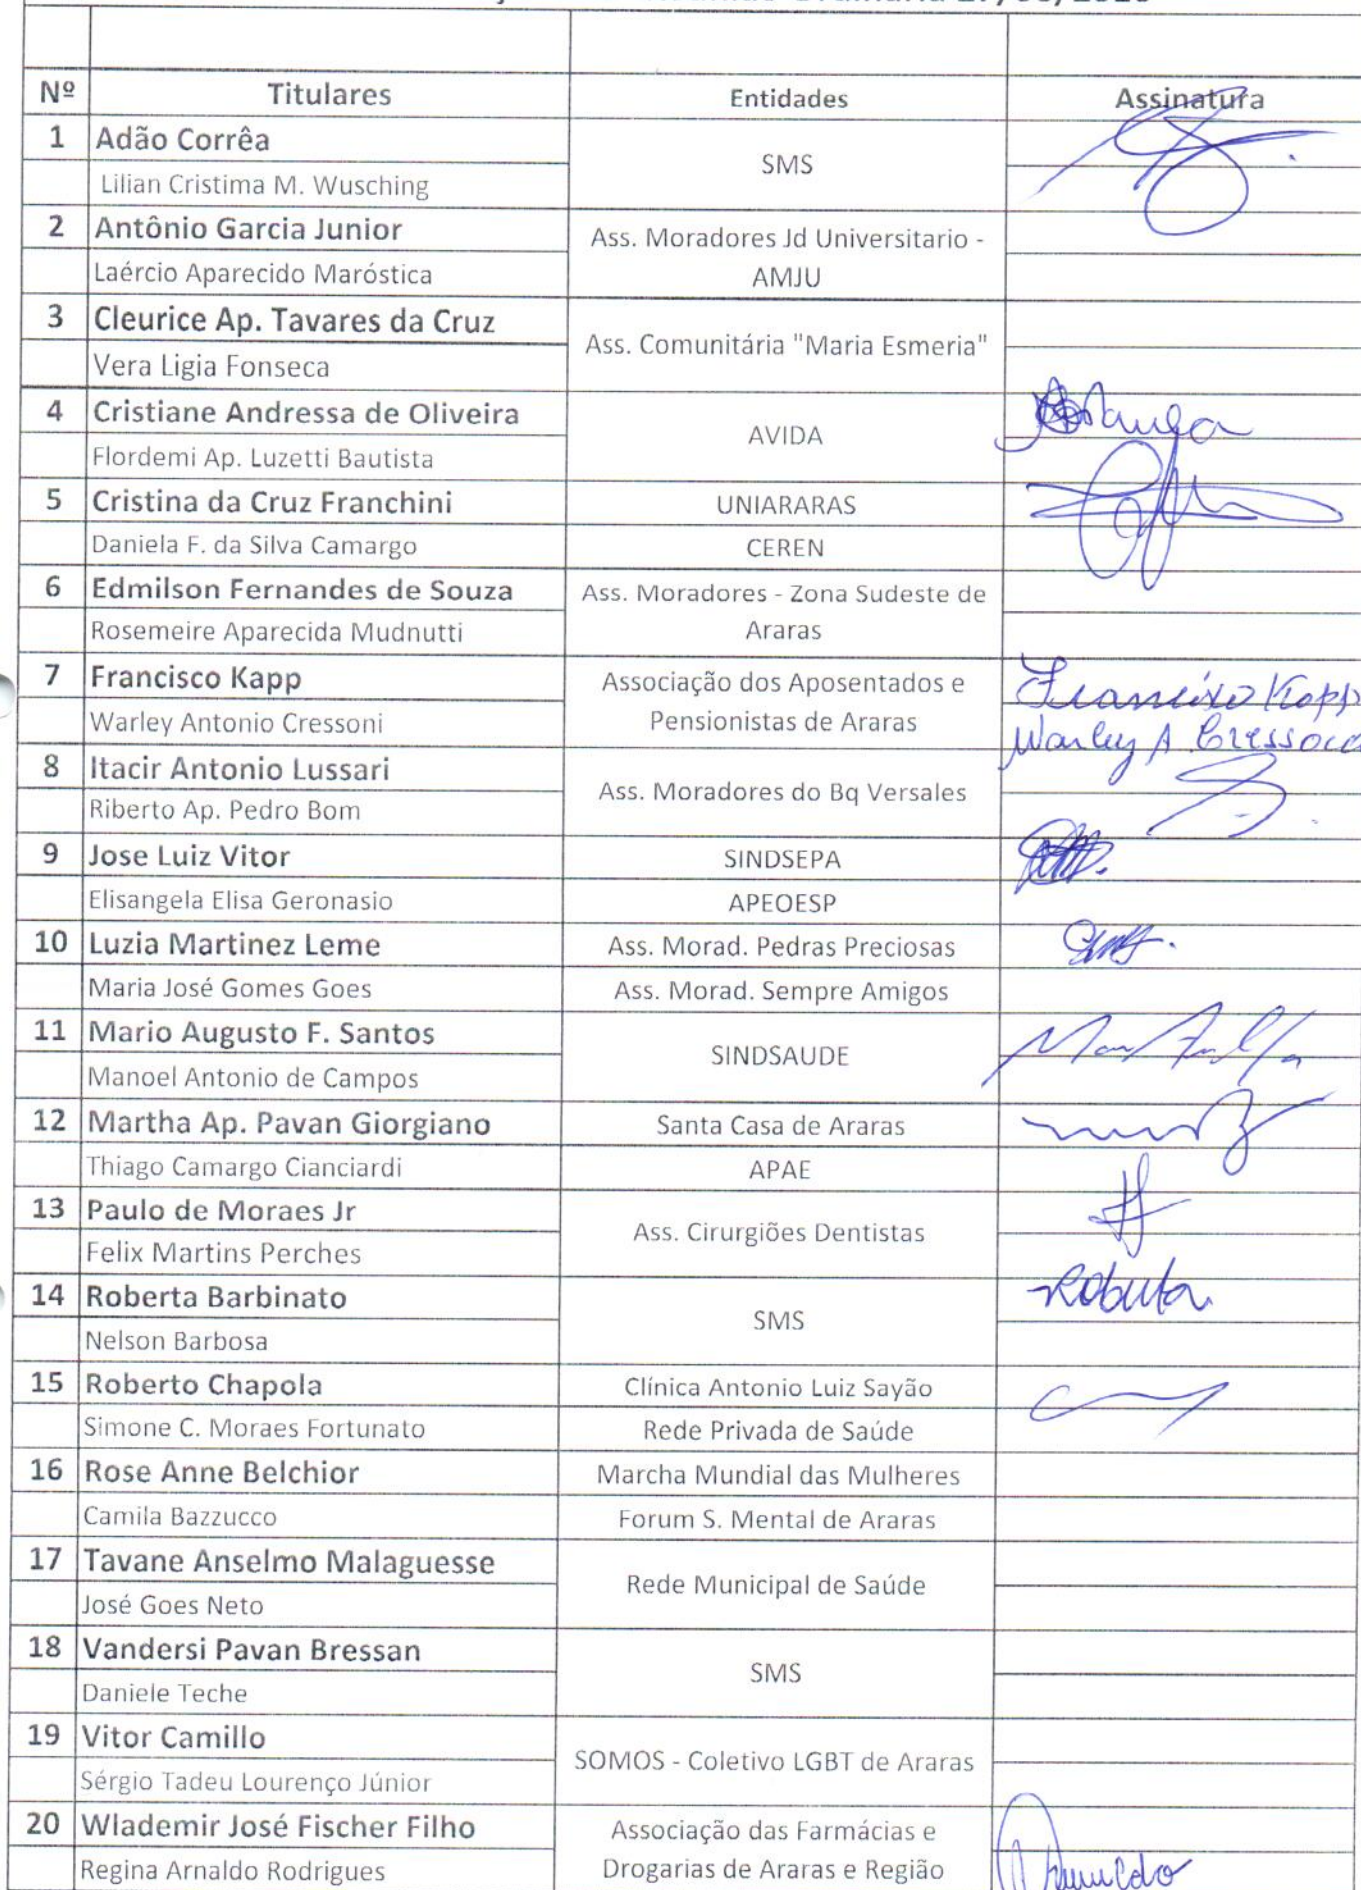 Nº Titulares Entidades Assinatura
1 Adão Corrêa
SMS
Lilian Cristima M. Wusching
2 Antônio Garcia Junior
Ass. Moradores Jd Universitario -
AMJU
Laércio Aparecido Maróstica
3 Cleurice Ap. Tavares da Cruz
Ass. Comunitária "Maria Esmeria"
Vera Ligia Fonseca
4 Cristiane Andressa de Oliveira
AVIDA
Flordemi Ap. Luzetti Bautista
5 Cristina da Cruz Franchini UNIARARAS
Daniela F. da Silva Camargo CEREN
6 Edmilson Fernandes de Souza
Ass. Moradores - Zona Sudeste de
Araras
Rosemeire Aparecida Mudnutti
7 Francisco Kapp
Associação dos Aposentados e
Pensionistas de Araras
Francisco Kapp
Warley Antonio Cressoni
Warley A
8 Itacir Antonio Lussari
Ass. Moradores do Bq Versales
Riberto Ap. Pedro Bom
9 Jose Luiz Vitor SINDSEPA
Elisangela Elisa Geronasio APEOESP
10 Luzia Martinez Leme Ass. Morad. Pedras Preciosas
Maria José Gomes Goes Ass. Morad. Sempre Amigos
11 Mario Augusto F. Santos
SINDSAUDE
Manoel Antonio de Campos
12 Martha Ap. Pavan Giorgiano Santa Casa de Araras
Thiago Camargo Cianciardi APAE
13 Paulo de Moraes Jr
Ass. Cirurgiões Dentistas
Felix Martins Perches
14 Roberta Barbinato
SMS
Roberta
Nelson Barbosa
15 Roberto Chapola Clínica Antonio Luiz Sayão
Simone C. Moraes Fortunato Rede Privada de Saúde
16 Rose Anne Belchior Marcha Mundial das Mulheres
Camila Bazzucco Forum S. Mental de Araras
17 Tavane Anselmo Malaguesse
Rede Municipal de Saúde
José Goes Neto
18 Vandersi Pavan Bressan
SMS
Daniele Teche
19 Vitor Camillo
SOMOS - Coletivo LGBT de Araras
Sérgio Tadeu Lourenço Júnior
20 Wlademir José Fischer Filho
Associação das Farmácias e
Drogarias de Araras e Região
Regina Arnaldo Rodrigues